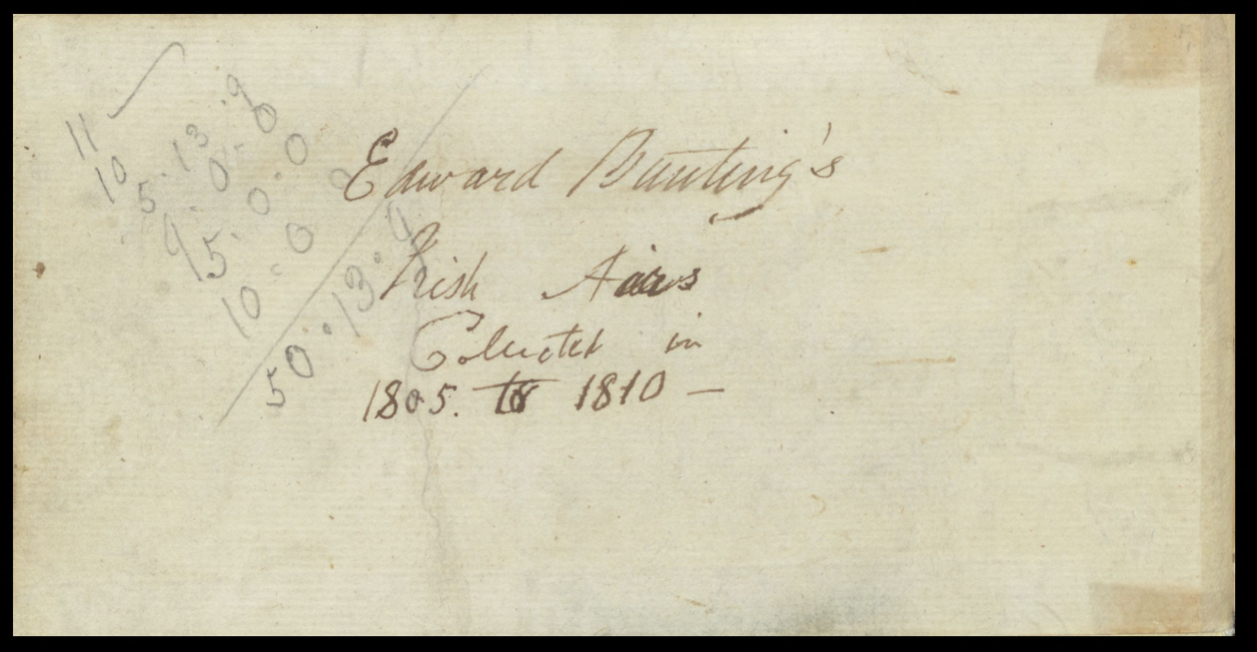 Edward Bunting's
Irish Airs
Collected in
1805. to 1810 —
11
10
5 . 13 . 9
9 . 0 - 0
15 . 0 . 0
10 . 0 . 0
50 . 13 . 9